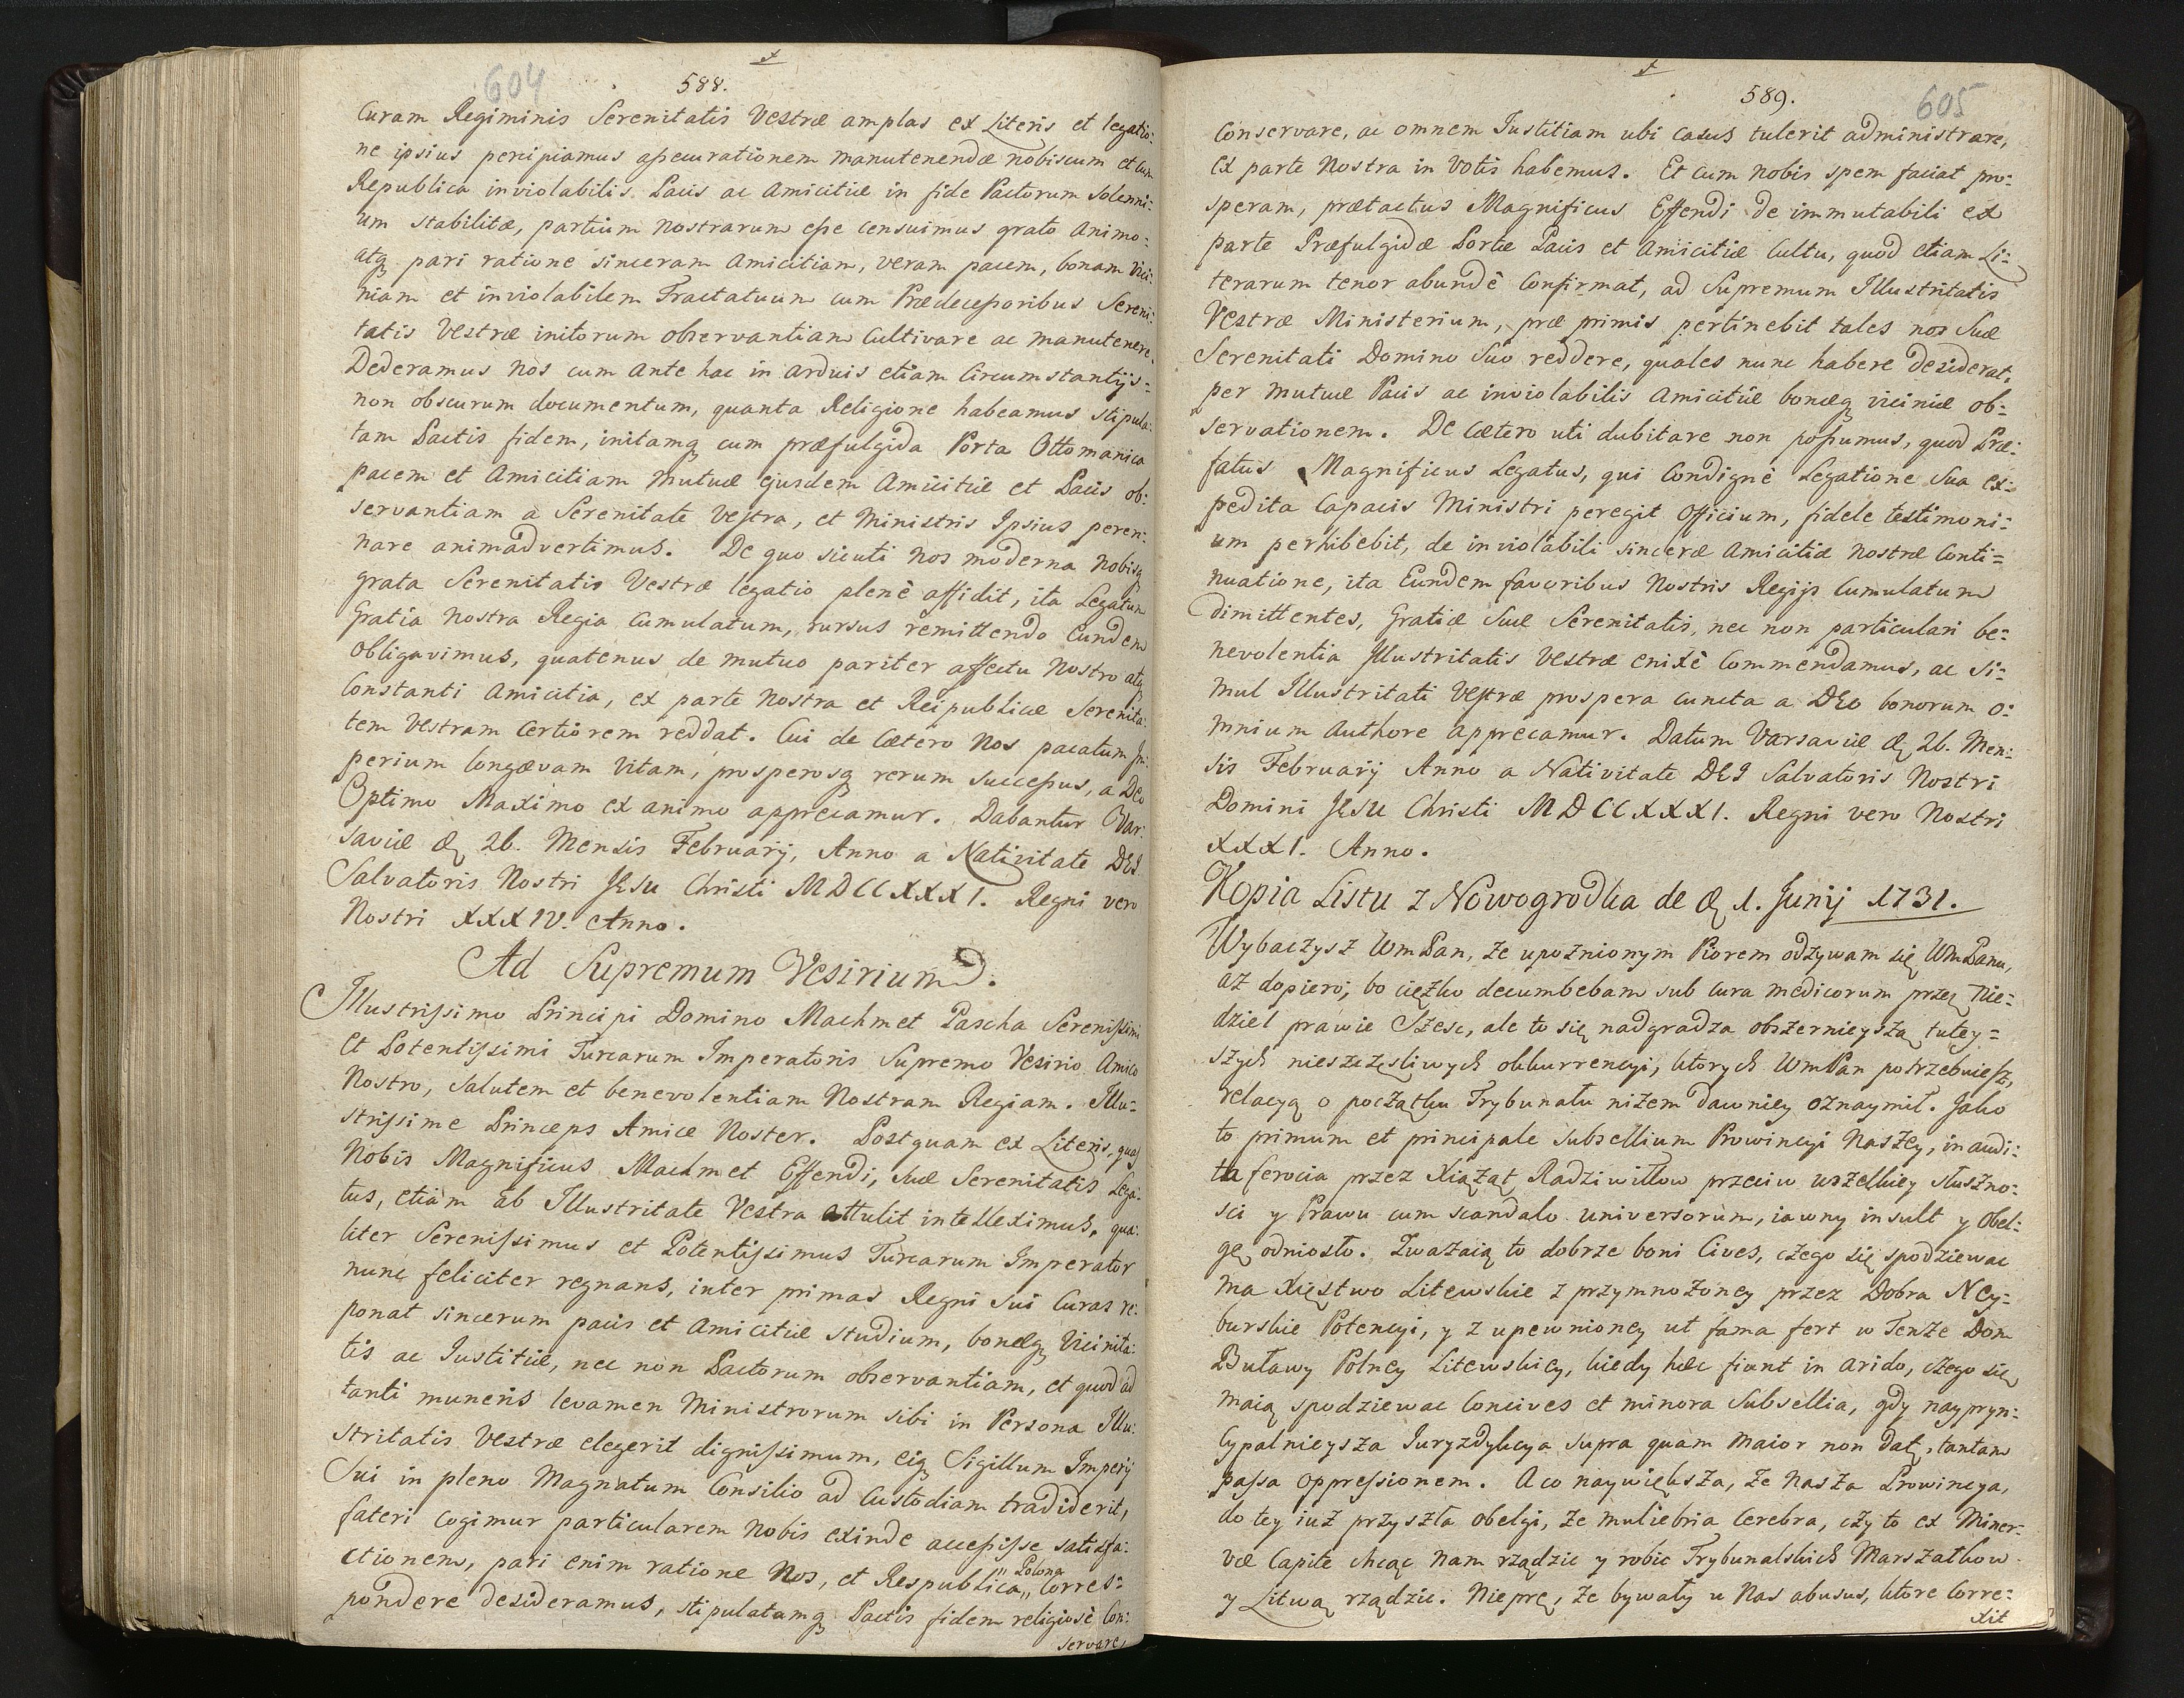 604
588.
Curam Regiminis Serenitatis Vestræ amplas ex Literis et legatio:
ne ipsius percipiamus assecurationem manutenendæ nobiscum et cum
Republica inviolabilis Pacis ac Amicitiæ in fide Pactorum Solenni:
um stabilitæ, partium nostrarum esse censuimus grato Animo:
atq pari ratione sinceram Amicitiam, veram pacem, bonam Vici:
niam et inviolabilem Tractatuum cum Prædecessoribus Sereni:
tatis Vestræ initorum observantiam Cultivare ac manutenere.
Dederamus Nos cum ante hac in arduis etiam Circumstantijs=
non obscurum documentum, quanta Religione habeamus stipula:
tam Pactis fidem, initamq cum præfulgida Porta Ottomanica
pacem et Amicitiam mutuæ ejusdem Amicitiæ et Pacis ob:
servantiam a Serenitate Vestra, et Ministris Ipsius peren:
nare animadvertimus. De quo sicuti nos moderna Nobisq
grata Serenitatis Vestræ legatio plenè affidit, ita Legatum
Gratia Nostra Regia Cumulatum, rursus remittendo Eundem
obligavimus, quatenus de mutuo pariter affectu Nostro atq
Constanti Amicitia, ex parte Nostra et Reipublicæ Serenita:
tem Vestram Certiorem reddat. Cui de Cætero Nos pacatum Im:
perium longævam Vitam, prosperosq rerum successus, a Deo
Optimo Maximo ex animo apprecamur. Dabantur Var:
saviæ d 26. Mensis February, Anno a Nativitate DEI
Salvatoris Nostri JESU Christi MDCCXXXI. Regni vero
Nostri XXXIV. Anno.
Ad Supremum Vesirium.
Illustrissimo Principi Domino Machmet Pascha Serenissimi
et Potentissimi Turcarum Imperatoris Supremo Vesirio Amico
Nostro, Salutem et benevolentiam Nostram Regiam. Illu=
strissime Princeps Amice Noster. Postquam ex Literis, quas
Nobis Magnificus Machmet Effendi, suæ Serenitatis Lega:
tus, etiam ab Illustritate Vestra attulit intelleximus, qua:
liter Serenissimus et Potentissimus Turcarum Imperator
nunc feliciter regnans, inter primas Regni sui Curas re:
ponat sincerum pacis et Amicitiæ studium, bonæq Vicinita:
tis ac Iustitiæ, nec non Pactorum observantiam, et quod ad
tanti muneris levamen Ministrorum sibi in Persona Illu:
stritatis Vestræ elegerit dignissimum, eiq Sigillum Imperij
Sui in pleno Magnatum Consilio ad Custodiam tradiderit,
fateri Cogimur particularem Nobis exinde accepisse satisfa:
ctionem, pari enim ratione Nos, et Respublica "Polona" Corres=
pondere desideramus, stipulatamq Pactis fidem religiosè Con:
servare,
605
589.
Conservare, ac omnem Iustitiam ubi casus tulerit administrare,
ex parte Nostra in Votis habemus. Et cum Nobis spem faciat pro:
speram, prætactus Magnificus Effendi de immutabili ex
parte Præfulgidæ Portæ Pacis et Amicitiæ Cultu, quod etiam Li:
terarum tenor abundè Confirmat, ad Supremum Illustritatis
Vestræ Ministerium, præ primis pertinebit tales nos Suæ
Serenitati Domino Suo reddere, quales nunc habere desiderat,
per mutuæ Pacis ac inviolabilis Amicitiæ bonæq viciniæ ob=
servationem. De Cætero uti dubitare non possumus, quod Præ:
fatus Magnificus Legatus, qui Condignè Legatione Sua ex=
pedita Capacis Ministri peregit Officium, fidele testimoni=
um perhibebit, de inviolabili sinceræ Amicitiæ Nostræ Conti=
nuatione, ita Eundem favoribus Nostris Regijs Cumulatum
dimittentes, Gratiæ Suæ Serenitatis, nec non particulari be=
nevolentia Illustritatis Vestræ enixè Commendamus, ac si=
mul Illustritati Vestræ prospera cuncta a DEO bonorum o:
mnium Authore apprecamur. Datum Varsaviæ d 26. Men:
sis February Anno a Nativitate DEI Salvatoris Nostri
Domini JESU Christi MDCCXXXI. Regni vero Nostri
XXXI. Anno.
Kopia Listu z Nowogrodka de d 1. Junij 1731.
Wybaczysz WmPan, że upoznionym Piorem odzywam się WmPanu,
aż dopiero, bo ciężko decumbebam sub cura medicorum przez Nie=
dziel prawie Szesc, ale to się nadgradza obszernieyszą tutey=
szych nieszczęsliwych okkurrencyi, ktorych WmPan potrzebuiesz,
relacyą o początku Trybunału niżem dawniey oznaymił. Jako
to primum et principale subsellium Prowincyi Naszey, inaudi:
ta ferocia przez Xiążąt Radziwiłłow przeciw wszelkiey słuszno:
sci y Prawu cum scandalo universorum, iawny insult y Obel:
gę odniosło. Zważaią to dobrze boni Cives, czego się spodziewac
ma Xięstwo Litewskie z przymnożoney przez Dobra Ney=
burskie Potencyi, y z upewnioney ut fama fert w Tenże Dom
Buławy Polney Litewskiey, kiedy hæc fiunt in arido, czego się
maią spodziewac Concives et minora Subsellia, gdy naypryn:
Cypalnieysza Juryzdykcya supra quam maior non dat, tantam
passa oppressionem. A co naywiększa, że Nasza Prowincya,
do tey iuż przyszła obelgi, że muliebria Cerebra, czy to ex Miner=
væ Capite chcąc Nam rządzic y robic Trybunalskich Marszałkow
y Litwą rządzic. Nieprę, że bywały u Nas abusus, ktore Corre:
xit